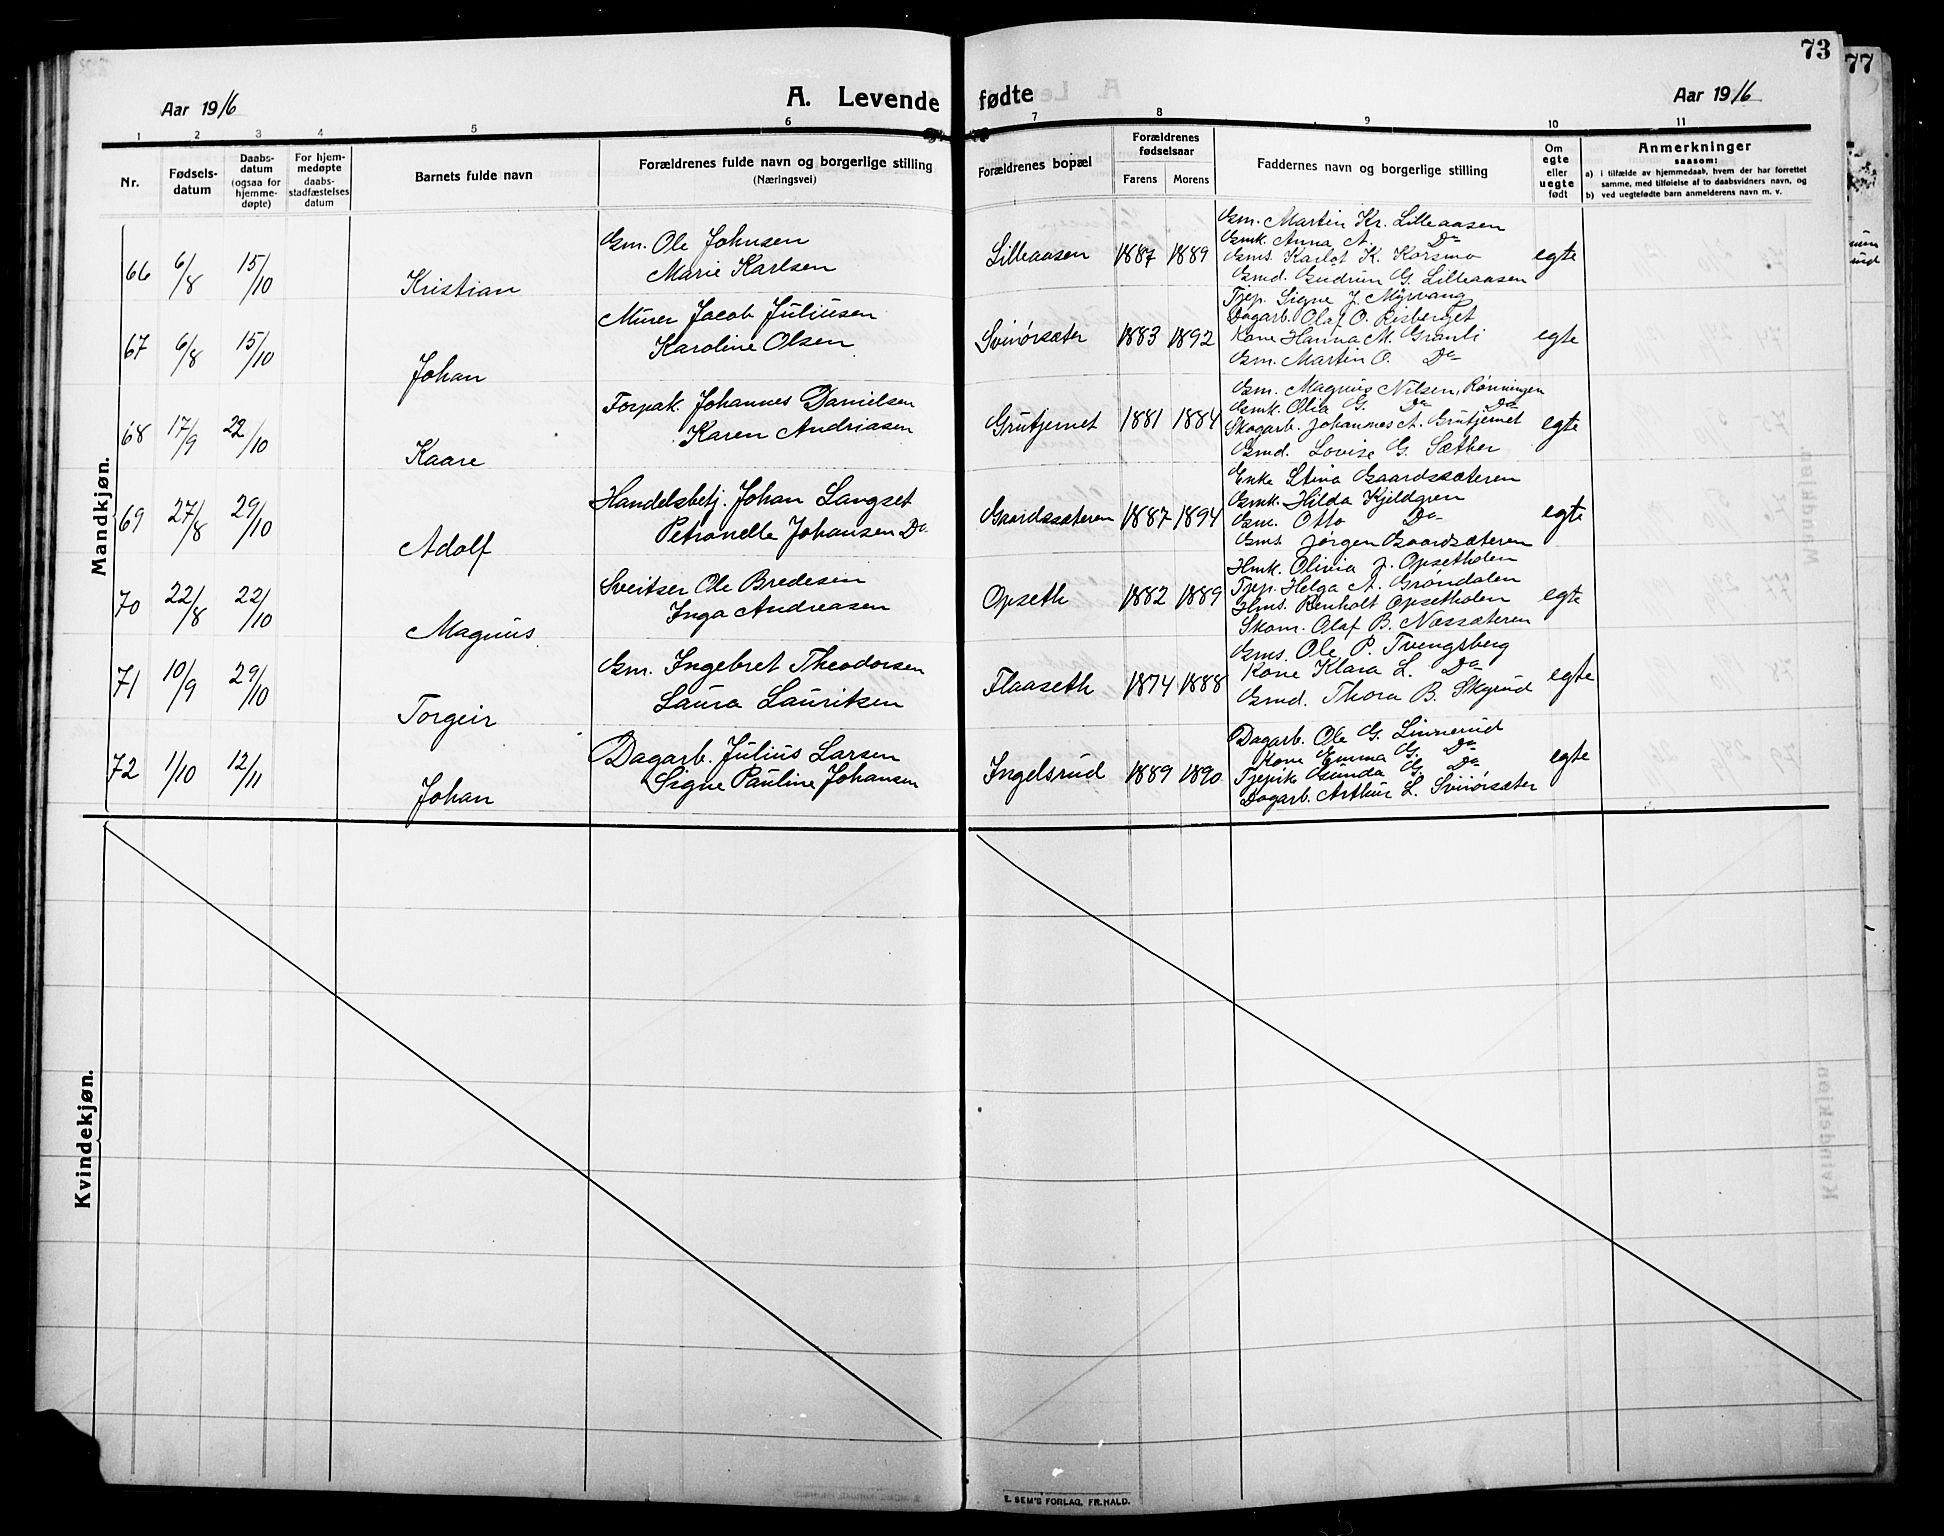 73
77
Aar 1916
A. Levende
fødte
Aar 1916
1 2 3 4 5 6 7 8 9 10 11
Nr.
Fødsels-
datum
Daabs-
datum
(ogsaa for
hjemme-
døpte)
For hjem-
medøpte
daabs-
stadfæstelses
datum
Barnets fulde navn
Forældrenes fulde navn og borgerlige stilling
(Næringsvei)
Forældrenes bopæl
Forældrenes
fødselsaar
Farens Morens
Faddernes navn og borgerlige stilling
Om
egte
eller
uegte
født
Anmerkninger
saasom:
a) i tilfælde av hjemmedaab, hvem der har forrettet
samme, med tilføielse af to daabsvidners navn, og
b) ved uegtefødte barn anmelderens navn m. v.
Mandkjøn.
66 6/8 15/10 Kristian
Gm. Ole Johnsen
Marie Karlsen
Lilleaasen 1887 1889
Gm. Martin Kr. Lilleaasen
Gmk. Anna A. Do
Gms. Karlot K. Korsmo
Gmd. Gudrun G. Lilleaasen
egte
67 6/8 15/10 Johan
Murer Jacob Juliusen
Karoline Olsen
Svinørsæter 1883 1892
Tjep. Signe J. Myrvang
Dagarb. Olaf O. Risberget
Kone Hanna M. Granli
Gm. Martin O. Do
egte
68 17/9 22/10 Kaare
Forpak. Johannes Danielsen
Karen Andriasen
Grutjernet 1881 1884
Gm. Magnus Nilsen, Rønningen
Gmk. Olia G. Do Do
Skogarb. Johannes A. Grutjernet
Gmd. Lovise G. Sæther
egte
69 27/8 29/10 Adolf
Handelsbetj. Johan Langset
Petronelle Johansen Do
Gaardssæteren 1887 1894
Enke Stina Gaardssæteren
Gmk. Hilda Kjeldgren
Gm. Otto Do
Gms. Jørgen Gaardsæteren
egte
70 22/8 22/10 Magnus.
Sveitser Ole Bredesen
Inga Andreasen
Opseth 1882 1889
Hmk. Olivia J. Opsetholen
Tjep. Helga A. Grøndalen
Hms. Renholt Opsetholen
Skom. Olaf B. Næssæteren
egte
71 10/9 29/10 Torgeir
Gm. Ingebret Theodorsen
Laura Lauritsen
Flaaseth 1874 1888
Gms. Ole P. Tvengsberg
Kone Klara L. Do
Gmd. Thora B. Skyrud
egte
72 1/10 12/11 Johan
Dagarb. Julius Larsen
Signe Pauline Johansen
Ingelsrud 1889 1890
Dagarb. Ole G. Linnerud
Kone Emma G. Do
Tjepik Gunda G. Do
Dagarb. Arthur L. Svinørsæter
egte
Kvindekjøn.
E. SEM'S FORLAG, FR.HALD.